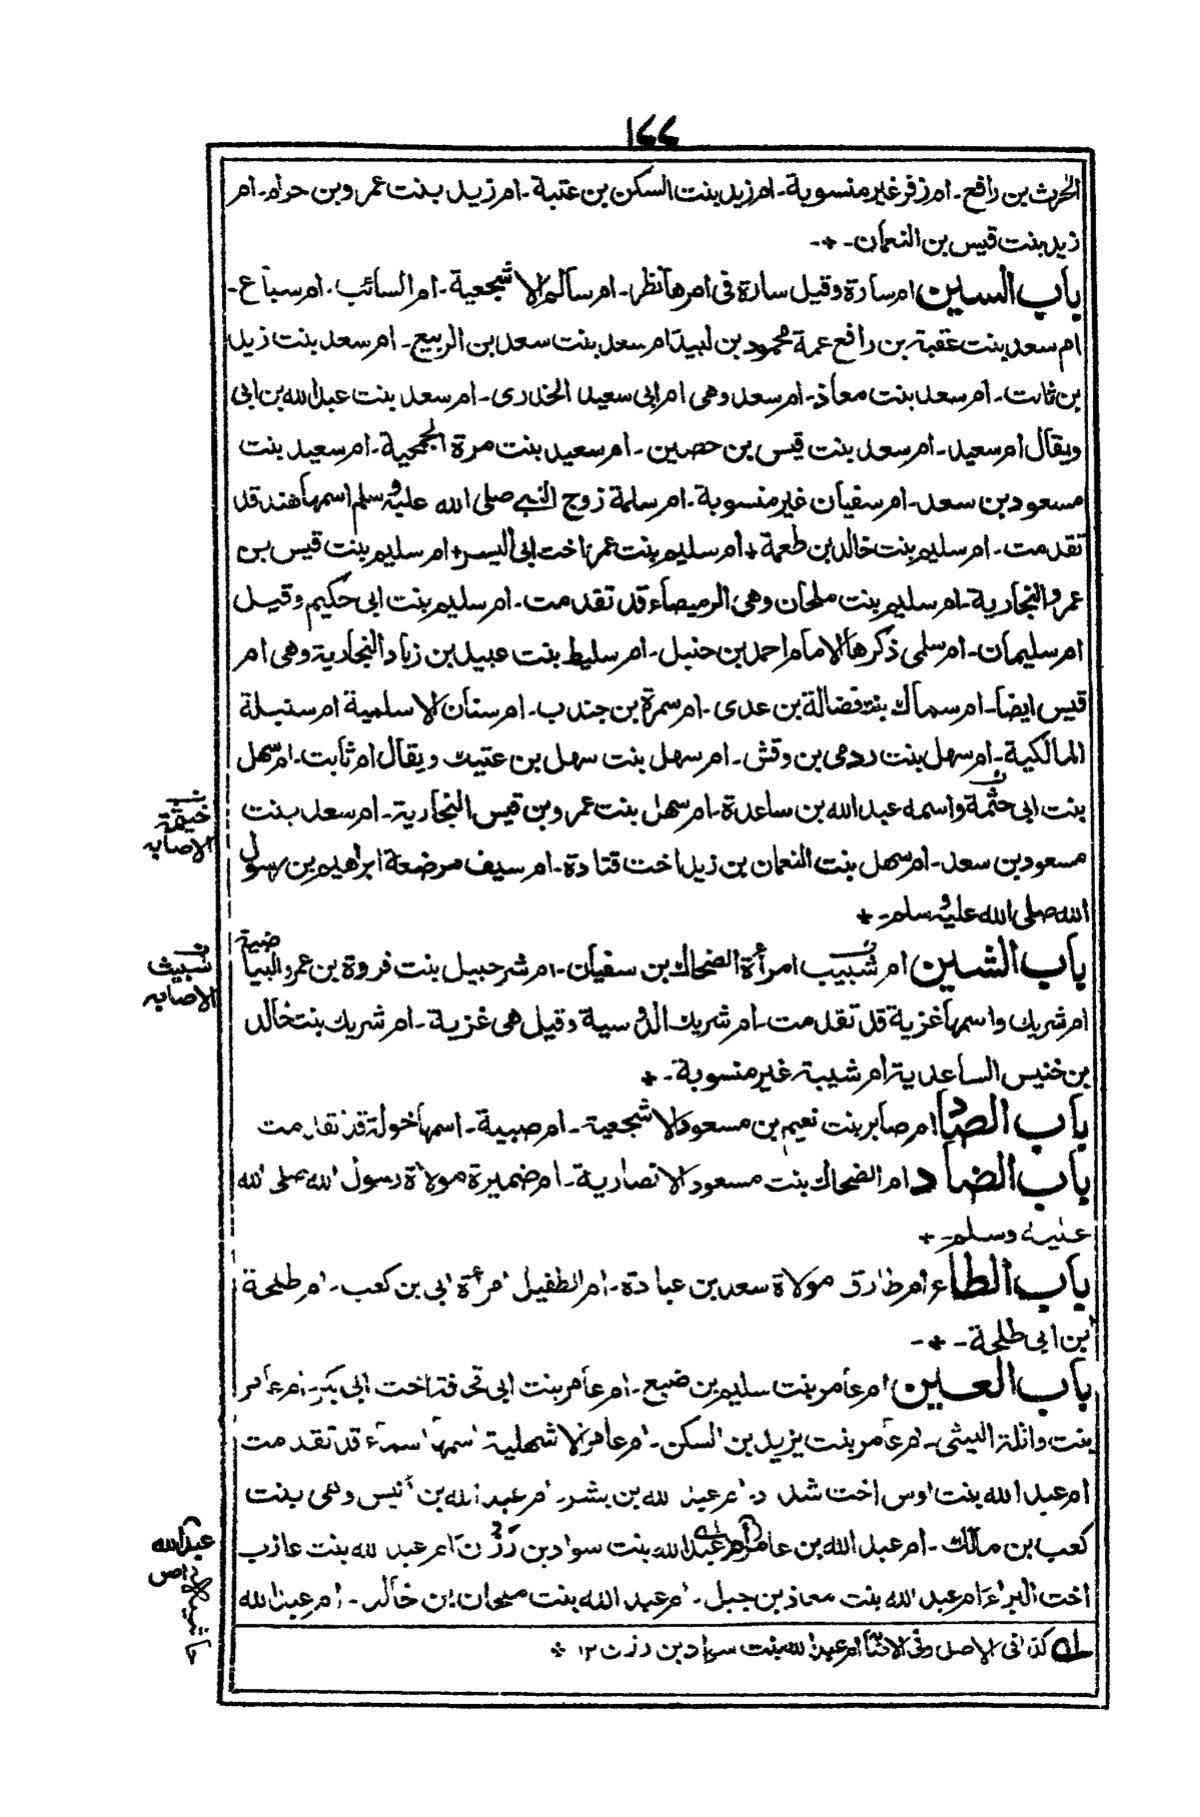 ١٧٧
الحرث بن رافع۔ ام زفر غير منسوبة۔ ام زيد بنت السكن بن عتبة۔ ام زيد بنت عمرو بن حرام۔ ام
زيد بنت قيس بن النعمان۔ ٭۔
باب السين ام سارة وقيل سارة فى امرها نظر۔ ام سالم الاشجعية۔ ام السائب۔ ام سباع۔
ام سعد بنت عقبة بن رافع عمة محمود بن لبيد ام سعد بنت سعد بن الربيع۔ ام سعد بنت زيد
بن ثابت۔ ام سعد بنت معاذ۔ ام سعد وهى ام ابى سعيد الخدرى۔ ام سعد بنت عبد الله بن ابى
ويقال ام سعيد۔ ام سعد بنت قيس بن حصين۔ ام سعيد بنت مرة الجمحية۔ ام سعيد بنت
مسعود بن سعد۔ ام سفيان غير منسوبة۔ ام سلمة زوج النبى صلى الله عليه وسلم اسمها هند قد
تقدمت۔ ام سليم بنت خالد بن طعمة ٭ ام سليم بنت عمرو اخت ابى اليسر ٭ ام سليم بنت قيس بن
عمرو النجارية۔ ام سليم بنت ملحان وهى الرميصاء قد تقدمت۔ ام سليم بنت ابى حكيم وقيل
ام سليمان۔ ام سلمى ذكرها الامام احمد بن حنبل۔ ام سليط بنت عبيد بن زياد النجارية وهى ام
قيس ايضا۔ ام سماك بنت فضالة بن عدى۔ ام سمرة بن جندب۔ ام سنان الاسلمية ام سنبلة
المالكية۔ ام سهل بنت رومى بن وقش۔ ام سهل بنت سهل بن عتيك ويقال ام ثابت۔ ام سهل
بنت ابى حثمة واسمه عبد الله بن ساعدة۔ ام سهل بنت عمرو بن قيس النجارية۔ ام سعد بنت
مسعود بن سعد۔ ام سهل بنت النعمان بن زيد اخت قتادة۔ ام سيف مرضعة ابراهيم بن رسول
الله صلى الله عليه وسلم۔ ٭
باب الشين ام شبيب امرأة الضحاك بن سفيان۔ ام شرحبيل بنت فروة بن عمرو البياضية
ام شريك واسمها غزية قد تقدمت۔ ام شريك الدوسية وقيل هى غزية۔ ام شريك بنت خالد
بن خنيس الساعدية ام شيبة غير منسوبة۔ ٭
باب الصاد ام صابر بنت نعيم بن مسعود الاشجعية۔ ام صبية۔ اسمها خولة قد تقدمت
باب الضاد ام الضحاك بنت مسعود الانصارية۔ ام ضميرة مولاة رسول الله صلى الله
عليه وسلم۔ ٭
باب الطاء ام طارق مولاة سعد بن عبادة۔ ام الطفيل امرأة ابى بن كعب۔ ام طلحة
بن ابى طلحة۔ ٭۔
باب العين ام عامر بنت سليم بن ضبع۔ ام عامر بنت ابى قحافة اخت ابى بكر۔ ام عامر
بنت واثلة الليثى۔ ام عامر بنت يزيد بن السكن۔ ام عامر الاشهلية اسمها اسماء قد تقدمت
ام عبد الله بنت اوس اخت شداد۔ ام عبد الله بن بشر۔ ام عبد الله بن انيس وهى بنت
كعب بن مالك۔ ام عبد الله بن عامر ام عبد الله بنت سواد بن رزن ام عبد الله بنت عازب
اخت البراء ام عبد الله بنت معاذ بن جبل۔ ام عبد الله بنت ملحان بن خالد۔ ام عبد الله
له كذا فى الاصل وفى الاصابة ام عبد الله بنت سواد بن رزن ١٢ ٭
خيثمة
الاصابه
ن شبيث
الاصابه
عبد الله